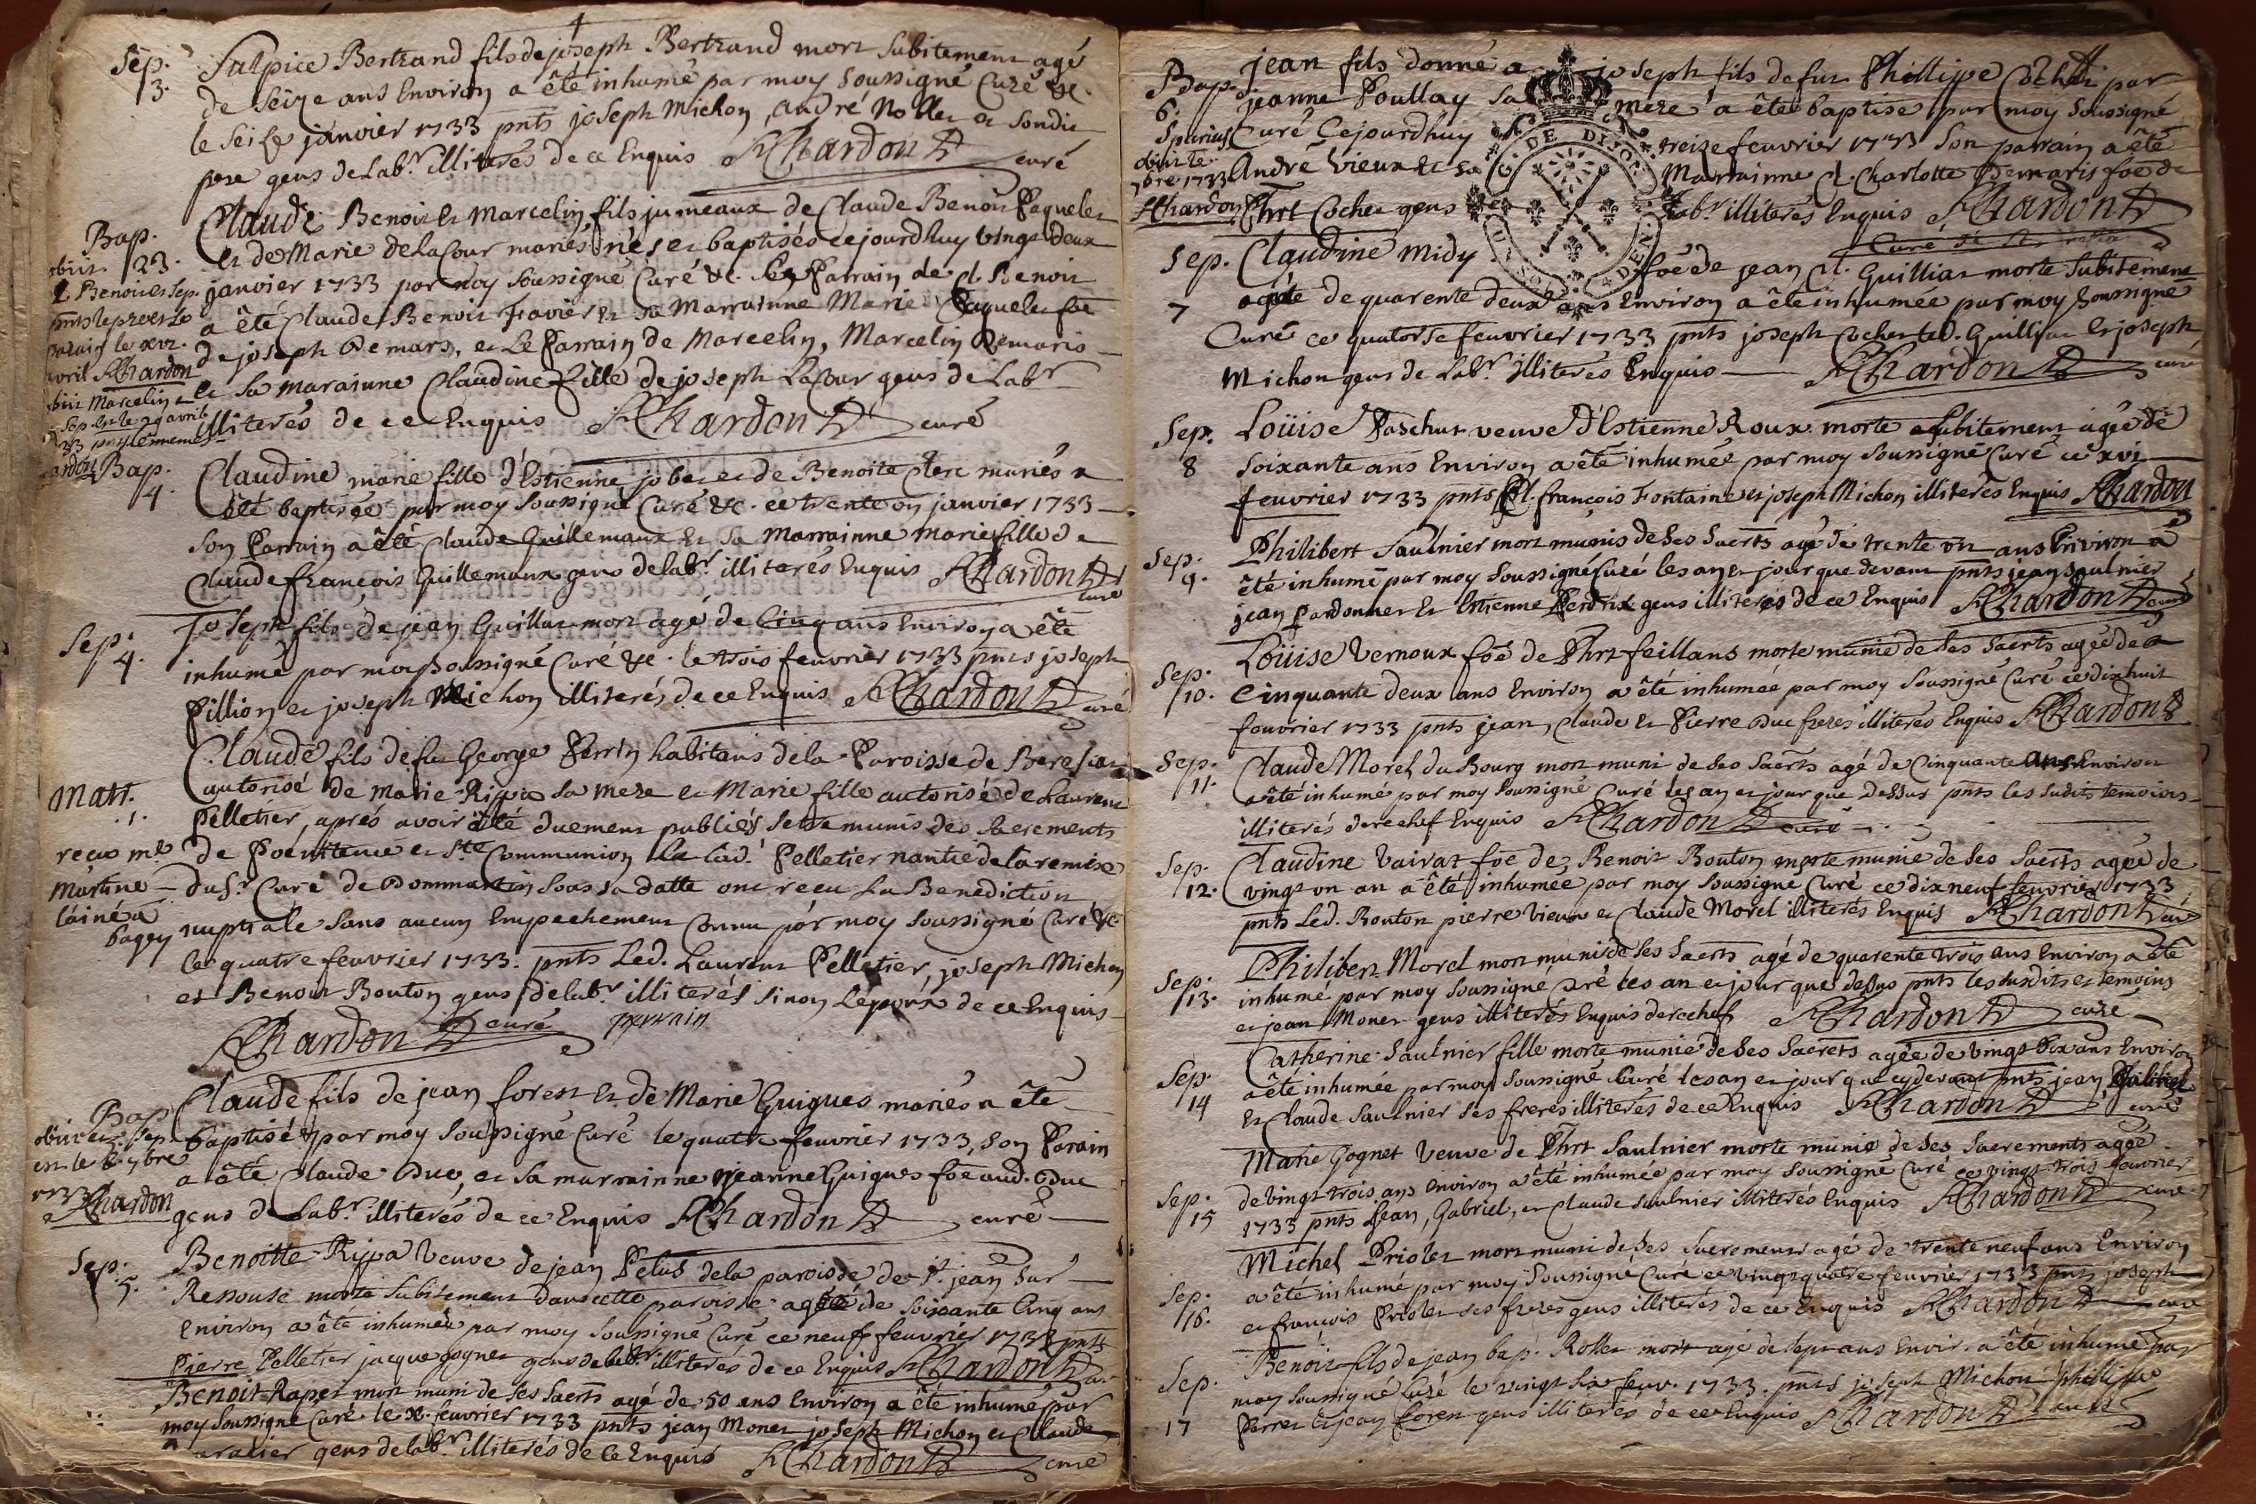 Sep.
3.
Sulpice Bertrand fils de joseph Bertrand mort Subitement agé
de Seize ans Environ a êté inhumé par moy Soussigné Curé &c.
le Seize janvier 1733 pnts joseph Michon, andré Nollet et Sondit
pere gens de Labr. illiterés de ce Enquis AChardon curé
Bap.
23.
Claude Benoit et Marcelin fils jumeaux de Claude Benoit Paquelet
et de Marie de la Cour mariés nés et baptisés cejourdhuy vingt deux
janvier 1733 par moy Soussigné Curé &c. Le Parrain de Cl. Benoit
a êté Claude Benoit Favier et Sa Marrainne Marie Paquelet foe
de joseph Demars, et Le Parrain de Marcelin, Marcelin Demaris
et Sa maraiune Claudine fille de joseph LaCour gens de Labr
illiterés de ce Enquis AChardon curé
Bap.
4.
Claudine marie fille d'Estienne jober et de Benoite Clerc mariés a
êté baptisée par moy Soussigné Curé &c. ce trente on janvier 1733
Son Parrain a êté Claude Guillemaux Et Sa Marrainne Marie fille de
Claude françois Guillemaux gens de labr. illiterés Enquis AChardon
curé
Sep.
4.
Joseph fils de jean Guillar mort agé de Cinq ans Environ a êté
inhumé par moy Soussigné Curé &c. le trois feuvrier 1733 pnts joseph
Pillion et joseph Michon illiterés de ce Enquis AChardon curé
Mari.
1.
Claude fils de fut George Perrin habitans de la Paroisse de
autorisé de Marie Rippa Sa mere et Marie fille autorisé de Laurent
Pelletier, aprés avoir êté duement publiés Sette munis des Sacrements
reçu mr de Poenitence et Ste Communion La Lad. Pelletier nantie de la remise
Martine du Sr. Curé de Dommartin Sous Sa datte ont reçu La Benediction
lainé a
bagey nuptiale Sans aucun Empechement Connu par moy Soussigné Curé &c
le quatre feuvrier 1733. pnts Led. Laurent Pelletier, joseph Michon
et Benoit Bouton gens de labr. illiterés Sinon Lepoux de ce Enquis
AChardon curé perrain
Bap
Claude fils de jean forest et de Marie Guigues mariés a êté
baptisé par moy Soussigné Curé le quatre feuvrier 1733, Son Parain
a êté Claude Duc, et Sa marrainne jeanne Guigues foe aud. Duc
gens de Labr. illiterés de ce Enquis AChardon curé
Sep.
5.
Benoitte Rippa Veuve de jean Pelus dela paroisse de St. jean Sur
Resouse morte Subitement dans cette paroisse agée de Soixante Cinq ans
Environ a êté inhumée par moy Soussigné Curé ce neuf feuvrier 1733 pnts
Pierre Pelletier jacque gognet gens de labr. illiterés de ce Enquis AChardon
Benoit Rapet mort muni de Ses Sacrts agé de 50 ans Environ a êté inhumé par
moy Soussigné Curé le x. feuvrier 1733 pnts jean Monet joseph Michon et Claude
gens de labr. illiterés de ce Enquis AChardon curé
Bap.
6.
Spurius
obiit le
7bre 1733
AChardon
jean fils donné a joseph fils de fut Phillipe Cochet par
jeanne Poullay Sa mere a êté baptisé par moy Soussigné
Curé Cejourdhuy treize feuvrier 1733 Son parrain a êté
André Vieux et Sa Marrainne Cl. Charlotte Demaris foe de
Phrt Cochet gens de labr. illiterés Enquis AChardon
Sep.
7
Claudine Midy foe de jean Cl. Guilliar morte Subitement
agée de quarente deux ans Environ a êté inhumée par moy Soussigné
Curé ce quatorse feuvrier 1733 pnts joseph Cochet Led. Guilliar et joseph
Michon gens de Labr. illiterés Enquis AChardon curé
Sep.
8
Loüise Paschut veuve d'Estienne Roux morte Subitement agée de
Soixante ans Environ a êté inhumée par moy Soussigné Curé ce xvi
feuvrier 1733 pnts Cl. françois Fontaine et joseph Michon illiterés Enquis AChardon
Sep.
9.
Philibert Saulnier mort munis de Ses Sacrts agé de trente un ans Environ a
êté inhumé par moy Soussigné Curé les an et jour que devant pnts jean Saulnier
jean Pardonnet Et Estienne Perdrix gens illiterés de ce Enquis AChardon curé
Sep.
10.
Loüise Vernoux foe de Phrt feillans morte munie de Ses Sacrts agée de
Cinquante deux ans Environ a êté inhumée par moy Soussigné Curé ce dixhuit
feuvrier 1733 pnts jean, Claude et Pierre Duc freres illiterés Enquis AChardon
Sep.
11.
Claude Morel du Bourg mort muni de Ses Sacrts agé de Cinquante ans Environ
a êté inhumé par moy Soussigné Curé les an et jour que dessus pnts les Sudits temoins
illiterés derechef Enquis AChardon curé
Sep.
12.
Claudine Vairat foe de Benoit Bouton morte munie de Ses Sacrts agée de
vingt on an a êté inhumée par moy Soussigné Curé ce dix neuf feuvrier 1733
pnts Led. Bouton pierre Vieux et Claude Morel illiterés Enquis AChardon curé
Sep.
13.
Philibert Morel mort muni de Ses Sacrts agé de quarente trois ans Environ a êté
inhumé par moy Soussigné Curé les an et jour que dessus pnts les Susdits temoins
et jean Monet gens illiterés Enquis derechef AChardon curé
Sep.
14
Catherine Saulnier fille morte munie de Ses Sacrets agée de vingt Six ans Environ
a êté inhumée par moy Soussigné Curé les an et jour que cydevant pnts jean Gabriel
Et Claude Saulnier Ses freres illiterés de ce Enquis AChardon curé
Sep.
15
Marie Gognet Veuve de Phrt Saulnier morte munie de Ses Sacrements agée
de vingt trois ans Environ a êté inhumée par moy Soussigné Curé ce vingt trois feuvrier
1733 pnts jean, Gabriel, et Claude Saulnier illiterés Enquis AChardon curé
Sep.
16.
Michel Priolet mort muni de Ses Sacrements agé de trente neuf ans Environ
a êté inhumé par moy Soussigné Curé ce vingt quatre feuvrier 1733 pnts joseph
et francois Priolet Ses freres gens illiterés de ce Enquis AChardon curé
Sep.
17
Benoit fils de jean bap. Rollet mort agé de Sept ans Envir. a êté inhumé par
moy Soussigné Curé le vingt Six feuv. 1733. pnts joseph Michon philippe
Perret Et jean foret gens illiterés de ce Enquis AChardon curé